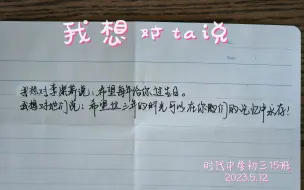 我想对ta说
我想对李淑莉说：希望每年给你过生日。
我想对她们说：希望这三年的时光可以在你们的记忆中永存！
时代中学初三15班
2023.5.12